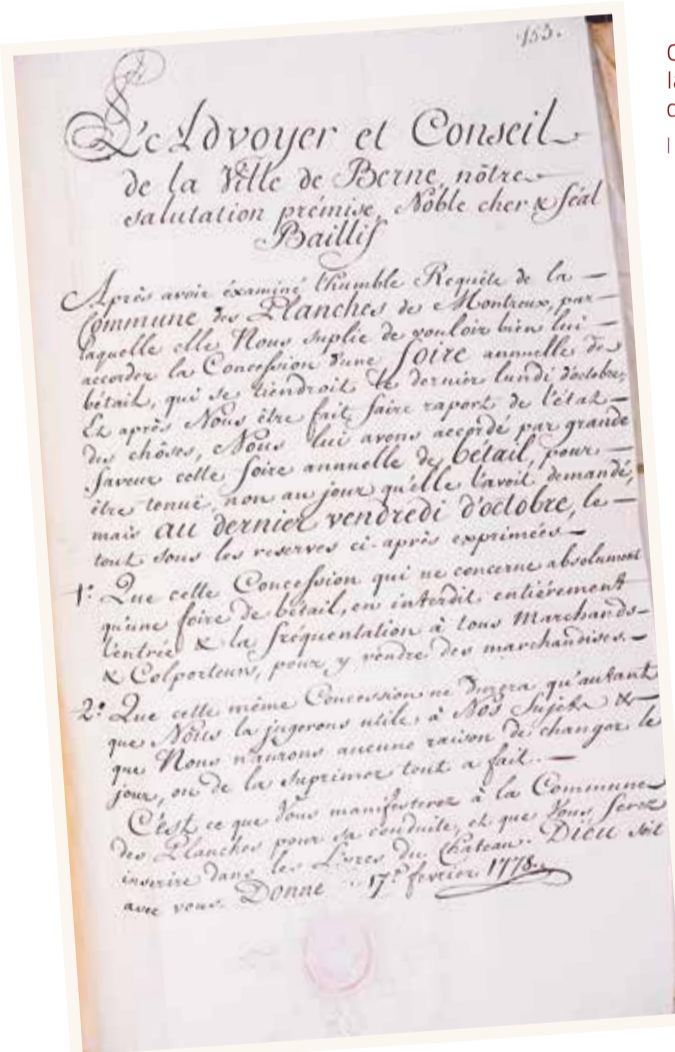 153.
L'Advoyer et Conseil
de la Ville de Berne, nôtre
salutation prémise, Noble cher & féal
Baillif
Après avoir éxaminé l'humble Requête de la —
Commune des Planches de Montreux, par —
laquelle elle Nous suplie de vouloir bien lui —
accorder la Concession d'une foire annuelle de
bétail, qui se tiendroit le dernier lundi d'octobre,
Et après Nous être fait faire raport de l'état —
des chôses, Nous lui avons accordé par grande
faveur cette foire annuelle de bétail, pour —
être tenuë, non au jour qu'elle l'avoit demandé,
mais au dernier vendredi d'octobre, le —
tout sous les reserves ci-après exprimées —
1.º Que cette Concession qui ne concerne absolument
qu'une foire de bétail, en interdit entiérement
l'entrée & la fréquentation à tous Marchands —
& Colporteurs, pour y vendre des marchandises. —
2.º Que cette même Concession ne durera qu'autant
que Nous la jugerons utile à Nos Sujets & —
que Nous n'aurons aucune raison de changer le
jour, ou de la suprimer tout a fait. —
C'est ce que Vous manifesterez à la Commune
des Planches pour sa conduite, et que Vous ferez
inscrire dans les Livres du Château. Dieu soit
avec vous. Donné 17.e fevrier 1778.